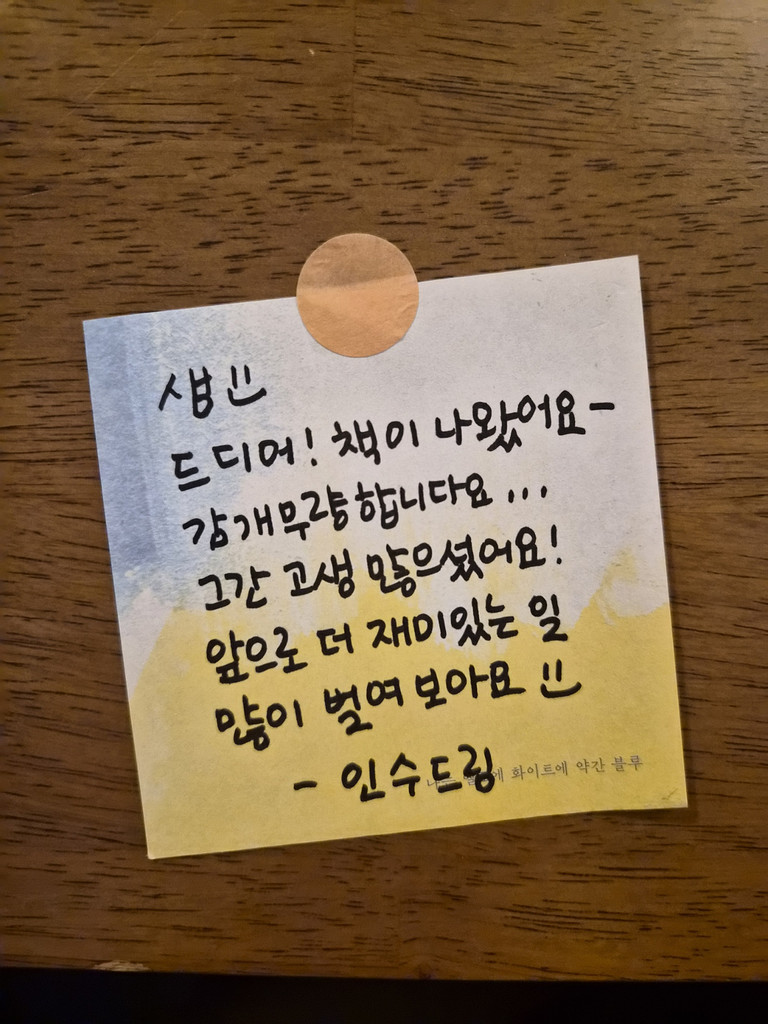 샵 :)
드디어! 책이 나왔어요-
감개무량합니다요...
그간 고생 많으셨어요!
앞으로 더 재미있는 일
많이 벌여 보아요 :)
- 인수드림
화이트에 약간 블루